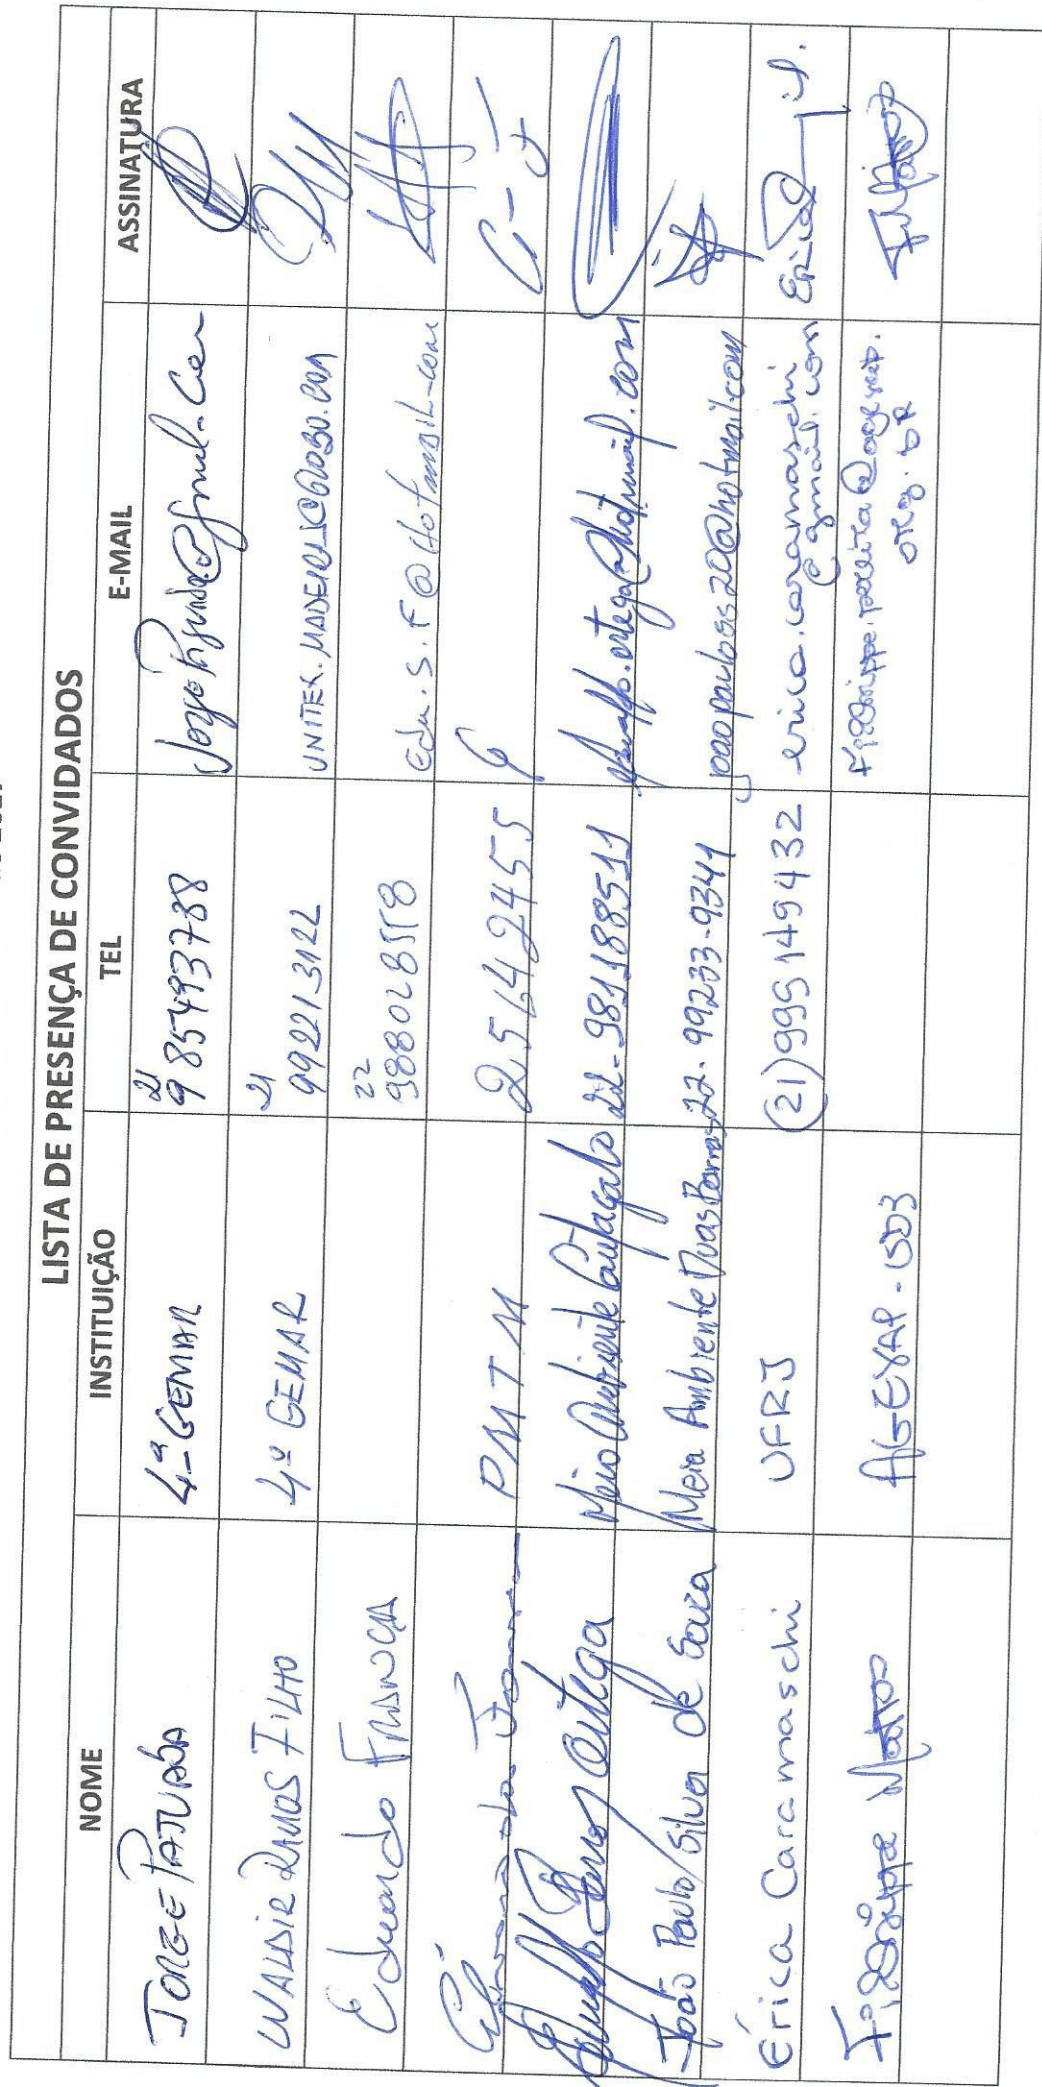 LISTA DE PRESENÇA DE CONVIDADOS
NOME INSTITUIÇÃO TEL E-MAIL ASSINATURA
JORGE PATURBA 4º GEMAR 21 985493788
WALDIR RAMOS FILHO 4º GEMAR 21 992213122 UNITEX.MADEIRAS@GLOBO.COM
Eduardo FRANÇA 22 988028558 edu.s.f@Hotmail.com
PMTM 25642455
Ortega Meio Ambiente Cantagalo 22-981188511
João Paulo Silva de Souza Meio Ambiente Duas Barras 22-99233-9341 joaopauloss20@hotmail.com
Érica Caramaschi UFRJ (21)995149432 erica.caramaschi
@gmail.com
Fillippe Mattos AGEVAP-UD3
org.br